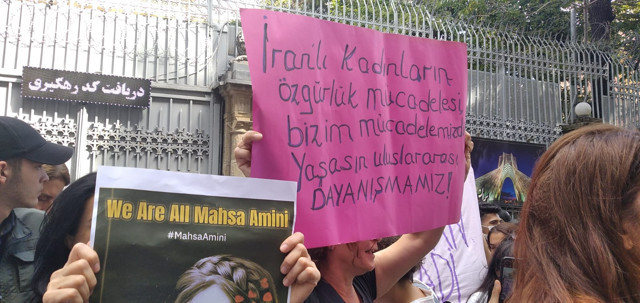 دریافت کد رهگیری
İran'lı Kadınların
özgürlük mücadelesi,
bizim mücadelemiz
Yaşasın uluslararası
DAYANIŞMAMIZ!
We Are All Mahsa Amini
#MahsaAmini